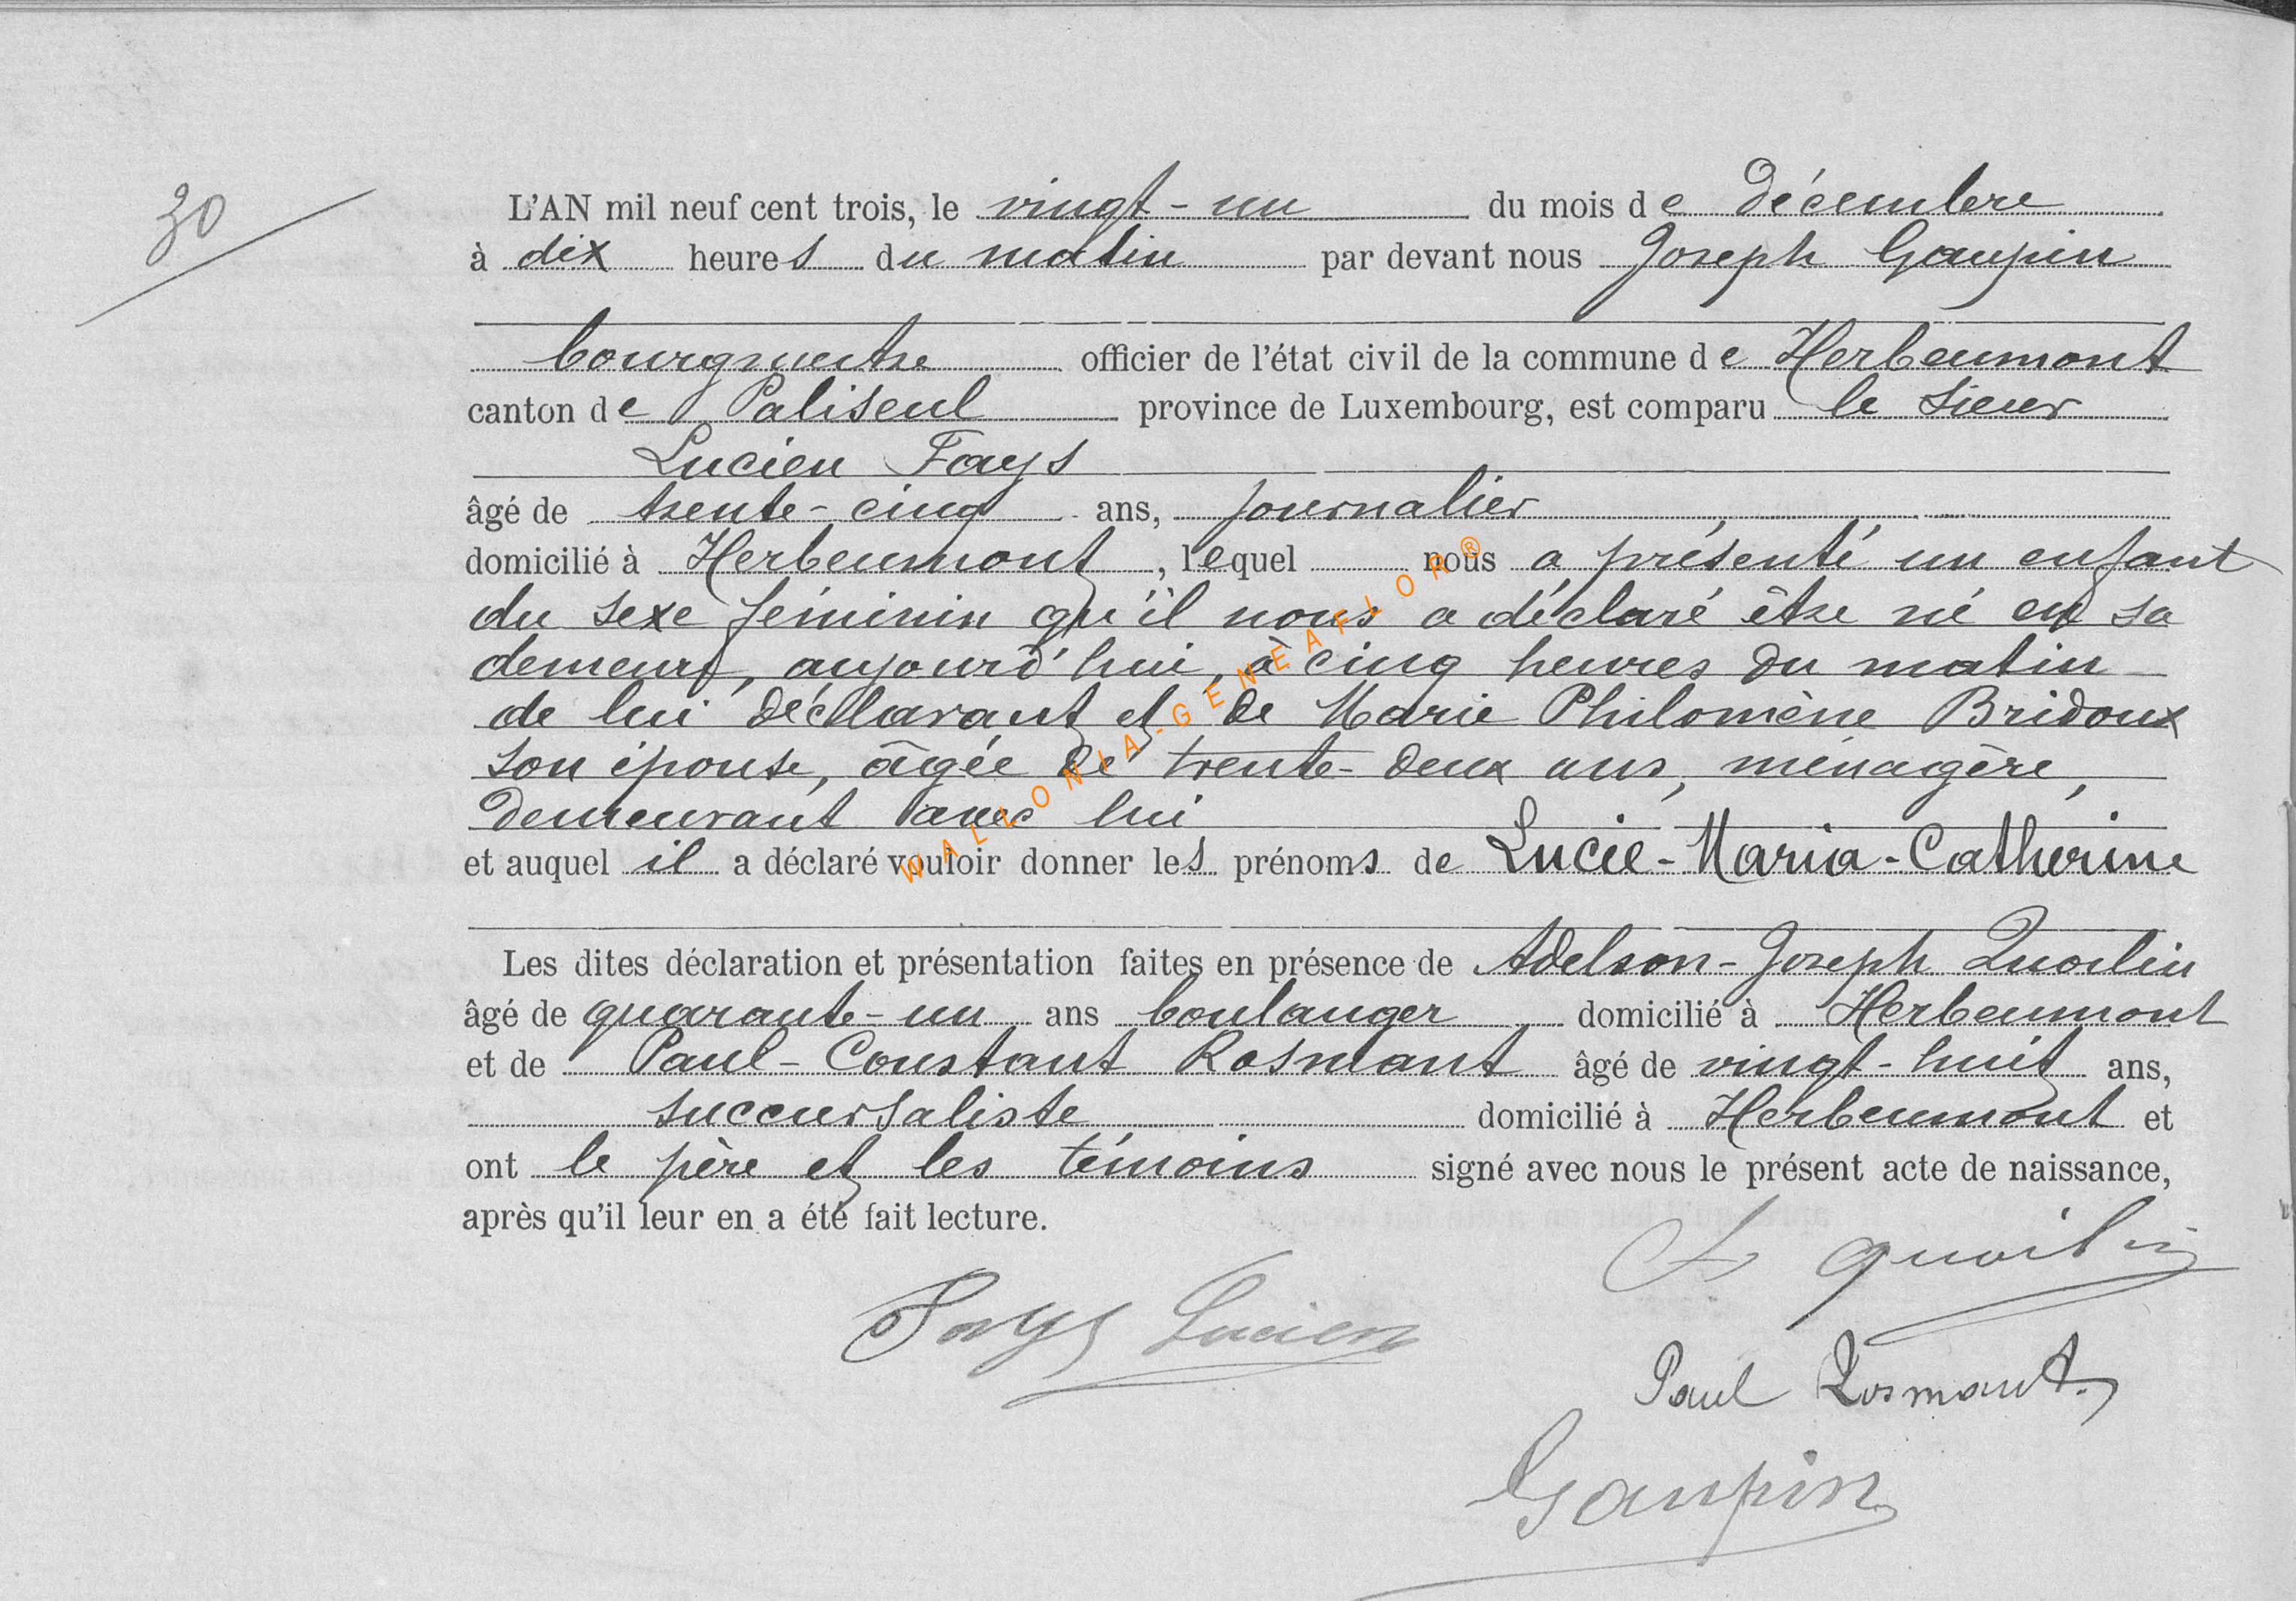 30
L'AN mil neuf cent trois, le vingt-un du mois de décembre
à dix heures du matin par devant nous Joseph Gaupin
bourgmestre officier de l'état civil de la commune de Herbeumont
canton de Paliseul province de Luxembourg, est comparu le sieur
Lucien Fays
âgé de trente-cinq ans, journalier
domicilié à Herbeumont, lequel nous a présenté un enfant
du sexe féminin qu'il nous a déclaré être né en sa
demeure, aujourd'hui, à cinq heures du matin
de lui déclarant et de Marie Philomène Bridoux
son épouse, âgée de trente-deux ans, ménagère,
demeurant avec lui
et auquel il a déclaré vouloir donner les prénoms de Lucie-Maria-Catherine
Les dites déclaration et présentation faites en présence de Adelson-Joseph Quoilin
âgé de quarante-un ans boulanger domicilié à Herbeumont
et de Paul-Constant Rosmant âgé de vingt-huit ans,
succursaliste domicilié à Herbeumont et
ont le père et les témoins signé avec nous le présent acte de naissance,
après qu'il leur en a été fait lecture.
A Quoilin
Fays Lucien
Paul Rosmant
Gaupin
WALLONIA-GENEAFLOR®